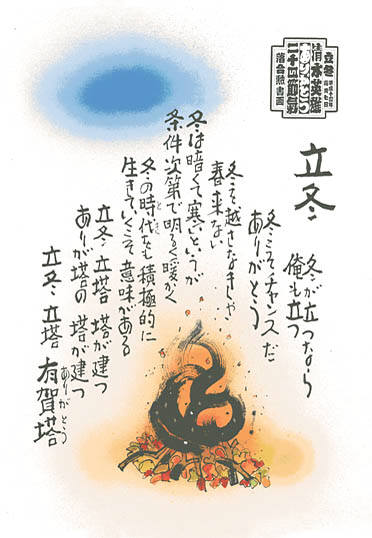 立冬
清水英雄
ありがとう
二十四節氣
落合勲書画
立冬
冬が立つなら
俺も立つ
冬こそチャンスだ
ありがとう
冬を越さなきゃ
春来ない
冬は暗くて寒いというが
条件次第で明るく暖かく
冬の時代をも積極的に
とき
生きていくこそ意味がある
立冬立塔 塔が建つ
ありが塔の 塔が建つ
立冬立塔 有賀塔
ありがとう